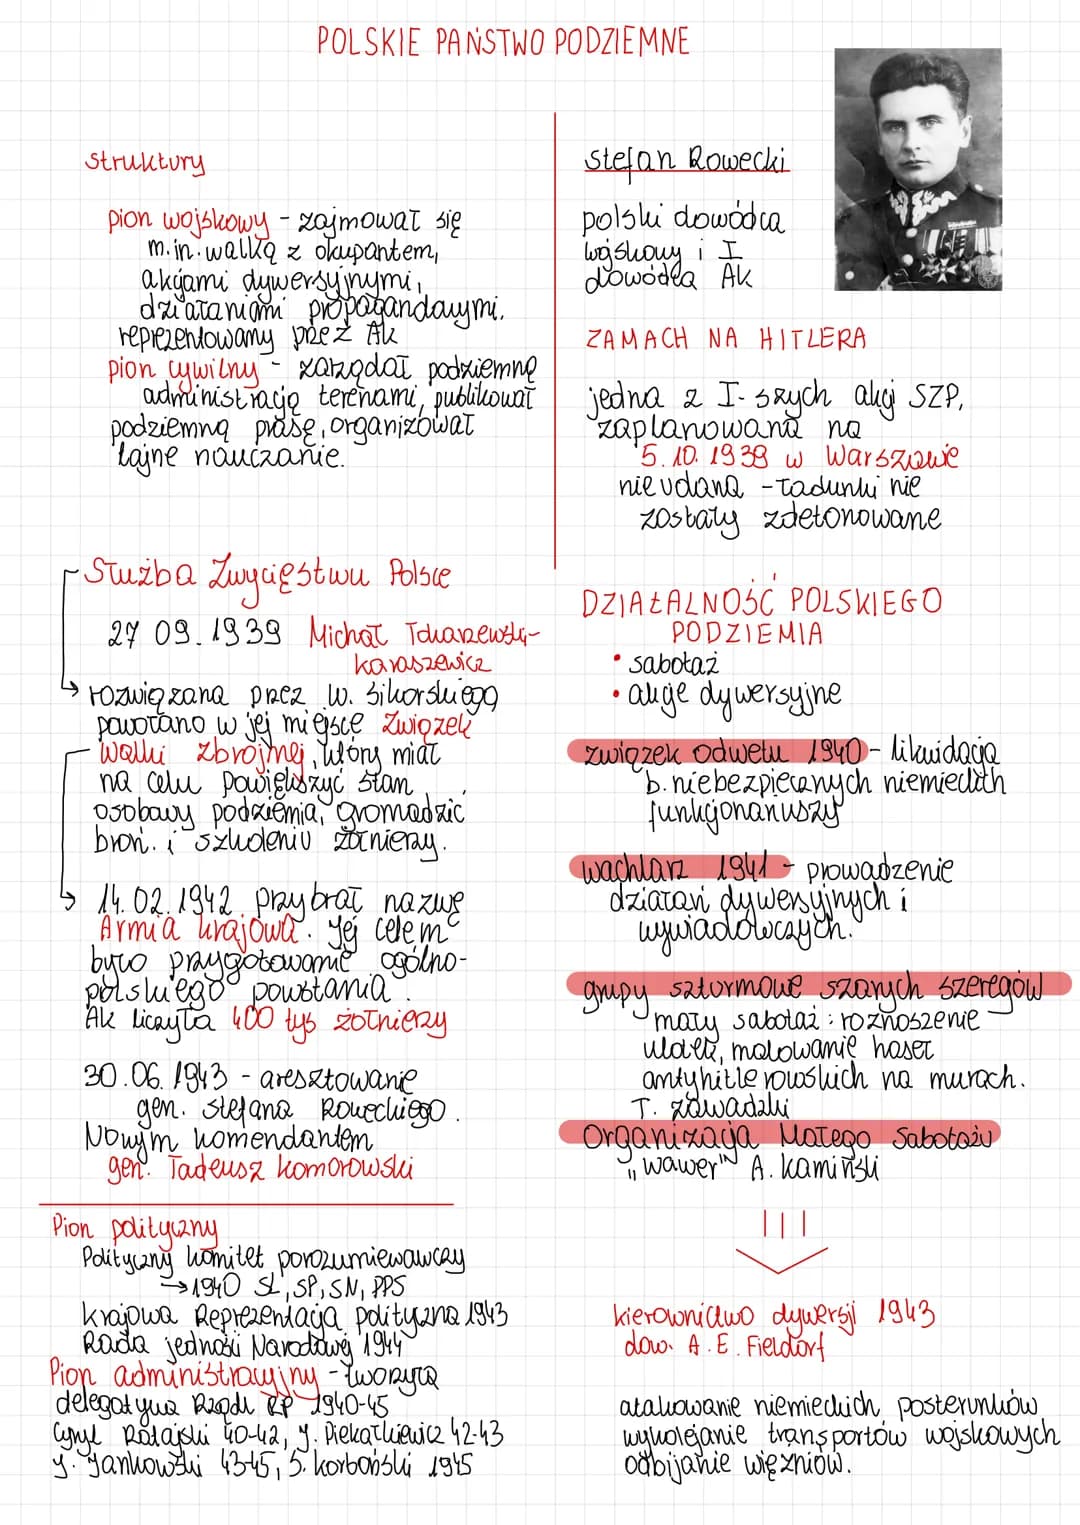 POLSKIE PAŃSTWO PODZIEMNE
struktury
pion wojskowy - zajmował się
m.in. walką z okupantem,
akcjami dywersyjnymi,
działaniami propagandowymi.
reprezentowany przez AK
pion cywilny - zarządał podziemną
administrację terenami, publikował
podziemną prasę, organizował
tajne nauczanie.
Służba Zwycięstwu Polsce
27 09.1939 Michał Tokarzewski-
karaszewicz
rozwiązana przez w. Sikorskiego
powołano w jej miejsce Związek
Walki zbrojnej, który miał
na celu powiększyć stan
osobowy podziemia, gromadzić
broń. i szkoleniu żołnierzy.
14.02.1942 przybrał nazwę
Armia krajowa. Jej celem
było przygotowanie ogólno-
polskiego powstania.
AK liczyła 400 tys żołnierzy
30.06.1943 - aresztowanie
gen. Stefana Roweckiego.
Nowym komendantem
gen. Tadeusz komorowski
Pion polityczny
Polityczny komitet porozumiewawczy
→1940 SL, SP, SN, PPS
krajowa Reprezentacja polityczna 1943
Rada jedności Narodowej 1944
Pion administracyjny - tworzyła
delegatura Rządu RP 1940-45
Cyryl Ratajski 40-42, J. Piekałkiewicz 42-43
J. Jankowski 43-45, S. korboński 1945
stefan Rowecki
polski dowódca
wojskowy i I
dowódca AK
ZAMACH NA HITLERA
jedna z I-szych akcji SZP,
zaplanowana na
5.10.1939 w Warszawie
nieudana - ładunki nie
zostały zdetonowane
DZIAŁALNOŚĆ POLSKIEGO
PODZIEMIA
• sabotaż
• akcje dywersyjne
związek odwetu 1940 - likwidacja
b. niebezpiecznych niemieckich
funkcjonariuszy
wachlarz 1941 - prowadzenie
działań dywersyjnych i
wywiadowczych.
grupy szturmowe szarych szeregów
mały sabotaż: roznoszenie
ulotek, malowanie haseł
antyhitlerowskich na murach.
T. zawadzki
Organizacja Małego Sabotażu
"wawer" A. kamiński
kierownictwo dywersji 1943
dow. A.E. Fieldorf
atakowanie niemieckich posterunków
wykolejanie transportów wojskowych
odbijanie więźniów.